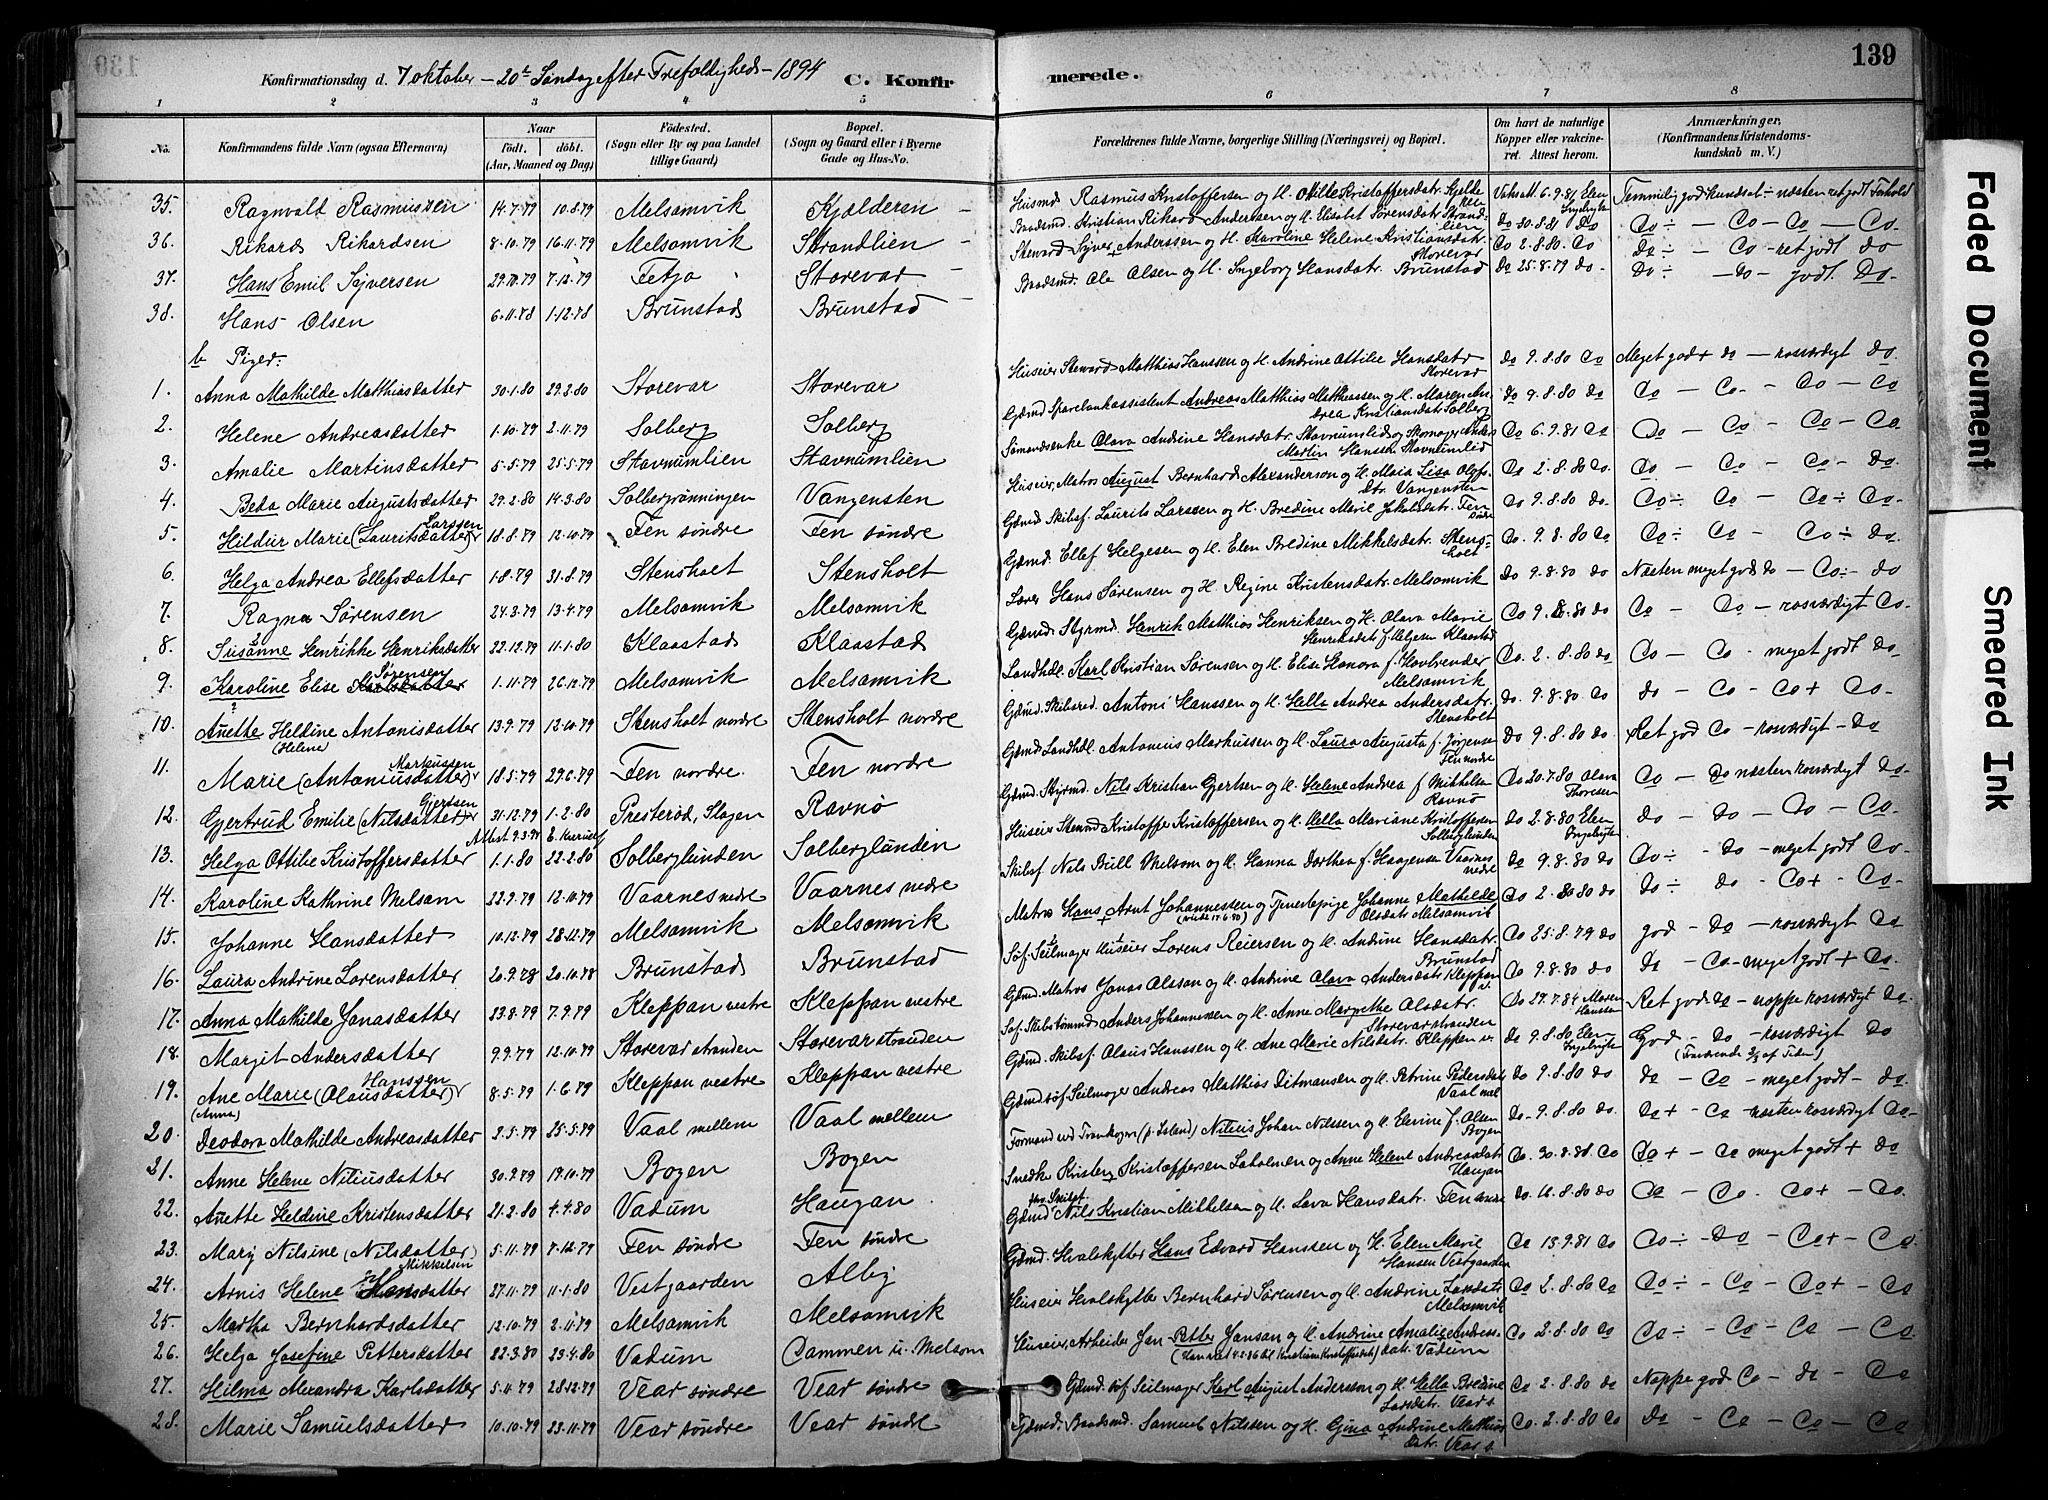 139
Konfirmationsdag d. 7 oktober - 20de Søndag efter Trefoldigheds - 1894 C. Konfir merede.
1 2 3 4 5 6 7 8
No. Konfirmandens fulde Navn (ogsaa Efternavn) Naar født. døbt. (Aar, Maaned og Dag) Fødested. (Sogn eller By og paa Landet tillige Gaard) Bopæl. (Sogn og Gaard eller i Byerne Gade og Hus-No. Forældrenes fulde Navne, borgerlige Stilling (Næringsvei) og Bopæl. Om havt de naturlige Kopper eller vakcineret. Attest herom. Anmærkninger. (Konfirmandens Kristendomskundskab m. V.)
35. Ragnvald Rasmussen 14.7.79 10.8.79 Melsomvik Kjælderen Husmd Rasmus Kristoffersen og H. Otilie Kristoffersdatr. 6.9.81 Temmelig god næsten ret godt Forhold
36. Rikard Rikardsen 8.10.79 16.11.79 Melsomvik Strandlien Baadsmd. Kristian Rikard Andersen og H. Elisabet Sørensdatr. Strandlien Do 30.8.81 Do
37. Hans Emil Syversen 29.10.79 7.12.79 Fetja Storevar Steward Syver Anderssen og H. Karoline Helene Kristiansdatr. Storevar Do 2.8.80 Do Do - Do - ret godt Do
38. Hans Olsen 6.11.78 1.12.78 Brunstad Brunstad Baadsmd. Ole Olsen og H. Ingeborg Hansdatr. Brunstad Do 25.8.79 Do Do - Do - godt Do
b Piger:
1. Anna Mathilde Matthiasdatter 30.1.80 29.2.80 Storevar Storevar Huseier Steward Matthias Hanssen og H. Andrine Otilie Hansdatr Storevar Do 9.8.80 Do Meget god + do - rosværdigt Do
2. Helene Andreasdatter 1.10.79 2.11.79 Solberg Solberg Gdmd Sparebankassistent Andreas Matthias Mathiassen og H. Maren Andrea Kristiansdatr Solberg Do 9.8.80 Do Do - Do - Do - Do
3. Amalie Martinsdatter 5.5.79 25.5.79 Stavnumlien Stavnumlien Sømandsenke Olava Andrine Hansdatr. Stavnumlied og Skomager Anders Martin Hanssen Stavnumlied Do 6.9.81 Do Do - Do - Do - Do
4. Beda Marie Augustsdatter 29.2.80 14.3.80 Solbergrønningen Vangensten Huseier, Matros August Bernhard Alexanderson og H. Maia Lisa Olofsdtr. Vangensten Do 2.8.80 Do Do - Do - Do - Do
5. Hildur Marie (Lauritsdatter) Larssen 18.8.79 12.10.79 Fen søndre Fen søndre Gdmd Skibsf. Laurits Larssen og H. Bredine Marie Jakobsdatr. Fen søndre Do 9.8.80 Do Do ÷ Do - Do ÷ Do
6. Helga Andrea Ellefsdatter 1.8.79 31.8.79 Stensholt Stensholt Gdmd. Ellef Helgesen og H. Elen Bredine Mikkelsdatr. Stensholt Do 9.8.80 Do Do ÷ Do - Do ÷ Do
7. Ragna Sørensen 24.3.79 13.4.79 Melsomvik Melsomvik Lærer Hans Sørensen og H. Regine Kristensdatr. Melsomvik Do 9.8.80 Do Næsten meget god do - Do - Do
8. Susanne Henrikke Henriksdatter 22.12.79 11.1.80 Klaastad Klaastad Gdmd. Styrmd. Henrik Matthias Henriksen og H. Olava Marie Henriksdatr f. Helgesen Klaastad Do 9.8.80 Do Do - Do - rosværdigt Do
9. Karoline Elise Sørensen 1.11.79 26.12.79 Melsomvik Melsomvik Landhdl. Karl Kristian Sørensen og H. Elise Honora f. Havbrender Melsomvik Do 2.8.80 Do Do - Do - meget godt Do
10. Anette Heldine Antonisdatter (Helene) 13.9.79 12.10.79 Stensholt nordre Stensholt nordre Gdmd. Skibsred. Antoni Hanssen og H. Hella Andrea Andersdatr. Stensholt Do 9.8.80 Do do - Do - Do + Do
11. Marie (Antoniusdatter) Markussen 18.5.79 29.6.79 Fen nordre. Fen nordre Gdmd Landhdl. Antonius Markussen og H. Laura Augusta f. Jørgensen Fen nordre Do 9.8.80 Do Ret god Do - rosværdigt - Do
12. Gjertrud Emilie (Nilsdatter) Gjertsen 31.12.79 1.2.80 Presterød, Slagen Ravnø Gdmd. Styrmd. Nils Kristian Gjertsen og H. Helene Andrea f. Mikkelsen Ravnø Do 20.7.80 Olava Thoresen Do - Do næsten rosværdigt Do
13. Helga Ottilie Kristoffersdatter 1.1.80 22.2.80 Solberglunden Solberglunden Huseier Steward Kristoffer Kristoffersen og H. Hella Mariane Kristoffersen Solberglunden Do 2.8.80 Elen Ingebrigts do - Do - Do - Do
14. Karoline Kathrine Melsom 22.9.79 12.10.79 Vaarnes nedre Vaarnes nedre Skibsf. Nils Bull Melsom og H. Hanna Dorthea f. Haagensen Vaarnes nedre Do 9.8.80 Do Do ÷ - Do - meget godt Do
15. Johanne Hansdatter 10.12.79 28.12.79 Melsomvik Melsomvik Matros Hans Arnt Johannessen og Tjenestepige Johanne Mathilde Olsdatr Melsomvik Do 2.8.80 Do Do ÷ Do - Do + - Do
16. Laura Andrine Lorensdatter 20.9.78 20.10.78 Brunstad Brunstad Søf. Seilmager Huseier Lorens Reiersen og H. Andrine Hansdatr. Brunstad Do 25.8.79 Do god - Do - rosværdigt Do
17. Anna Mathilde Jonasdatter 23.8.79 7.9.79 Kleppan vestre Kleppan vestre Gdmd. Matros Jonas Olsson og H. Andrine Olava Andersdatr Kleppan v. Do 9.8.80 Do Do - Do - meget godt + Do
18. Margit Andersdatter 9.9.79 12.10.79 Storevarstranden Storevarstranden Søf. Skibstømmd Anders Johannessen og H. Anne Margrethe Olsdatr. Storevarstranden Do 29.7.84 Maren Hanssen Ret god Do - noppe rosværdigt Do
19. Ane Marie (Olausdatter) Hanssen (Anna) 8.5.79 1.6.79 Kleppan vestre Kleppan vestre Gdmd. Skibsf Olaus Hanssen og H. Ane Marie Nilsdatr. Kleppen v. Do 9.8.80 Elen Ingebrigts God - Do - rosværdigt Do (Fraværende af Tiden)
20. Deodora Mathilde Andreasdatter 2.5.79 25.5.79 Vaal mellem Vaal mellem Gdmd søf Seilmager Andreas Matthias Ditmansen og H. Petrine Pedersdatr Vaal mel Do 9.8.80 Do do - Do - meget godt - do
21. Anne Helene Nitiusdatter 30.9.79 19.10.79 Bogen Bogen Formand ved Trankogeri (p. Island) Nitius Johan Nilssen og H. Elevine f. Olsen Bogen Do 9.8.80 Do Do + - Do næsten rosværdigt Do
22. Anette Heldine Kristensdatter 21.2.80 4.4.80 Vadum Haugan Snedker Kristen Kristoffersen Laholmen og Anne Helene Andreasdatr Haugan Do 30.8.81 Do Do + - Do meget godt + Do
23. Mary Nilsine (Nilsdatter) Mikkelsen 5.11.79 7.12.79 Fen søndre Fen søndre Gdmd Nils Kristian Mikkelsen og H. Lova Hansdatr. Fen søndre Do 16.8.80 Do Do - Do - Do + - Do
24. Arnis Helene Hansdatter 27.11.79 11.1.80 Vestgaarden Alby Gdmd. Hvalskytter Hans Edvard Hanssen og H. Elen Marie Hansen Vestgaarden Do 13.9.81 Do Do ÷ - Do - Do + - Do
25. Martha Bernhardsdatter 12.10.79 2.11.79 Melsomvik Melsomvik Huseier Hvalskytter Bernhard Sørensen og H. Andrine Larsdatr Melsomvik Do 2.8.80 Do Do ÷ - Do - Do + - Do
26. Helga Josefine Pettersdatter 22.3.80 23.4.80 Vadum Dammen u. Melsom Huseier, Arbeider Jan Petter Jansan og H. Andrine Amalie Andreasdatr. Vadum Do 2.8.80 Do Do ÷ - Do - Do - Do
27. Hilma Alexandra Karlsdatter 5.11.79 28.12.79 Vear søndre Vear søndre Gdmd. søf Seilmager Karl August Andersson og H. Hella Bredine Larsdatr. Vear s Do 2.8.80 do Noppe god Do - do - Do
28. Marie Samuelsdatter 10.10.79 23.11.79 Vear søndre Vear søndre Gdmd. Baadsmd. Samuel Nilssen og H. Gina Andrine Mathiasdatr. Vear s. Do 2.8.80 Do Do - Do - Do - Do
Faded Document
Smeared Ink